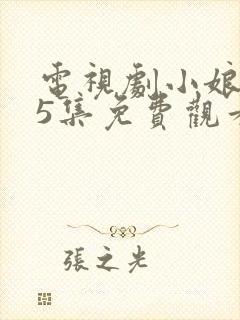 電視劇小娘
5集免費觀
張之光